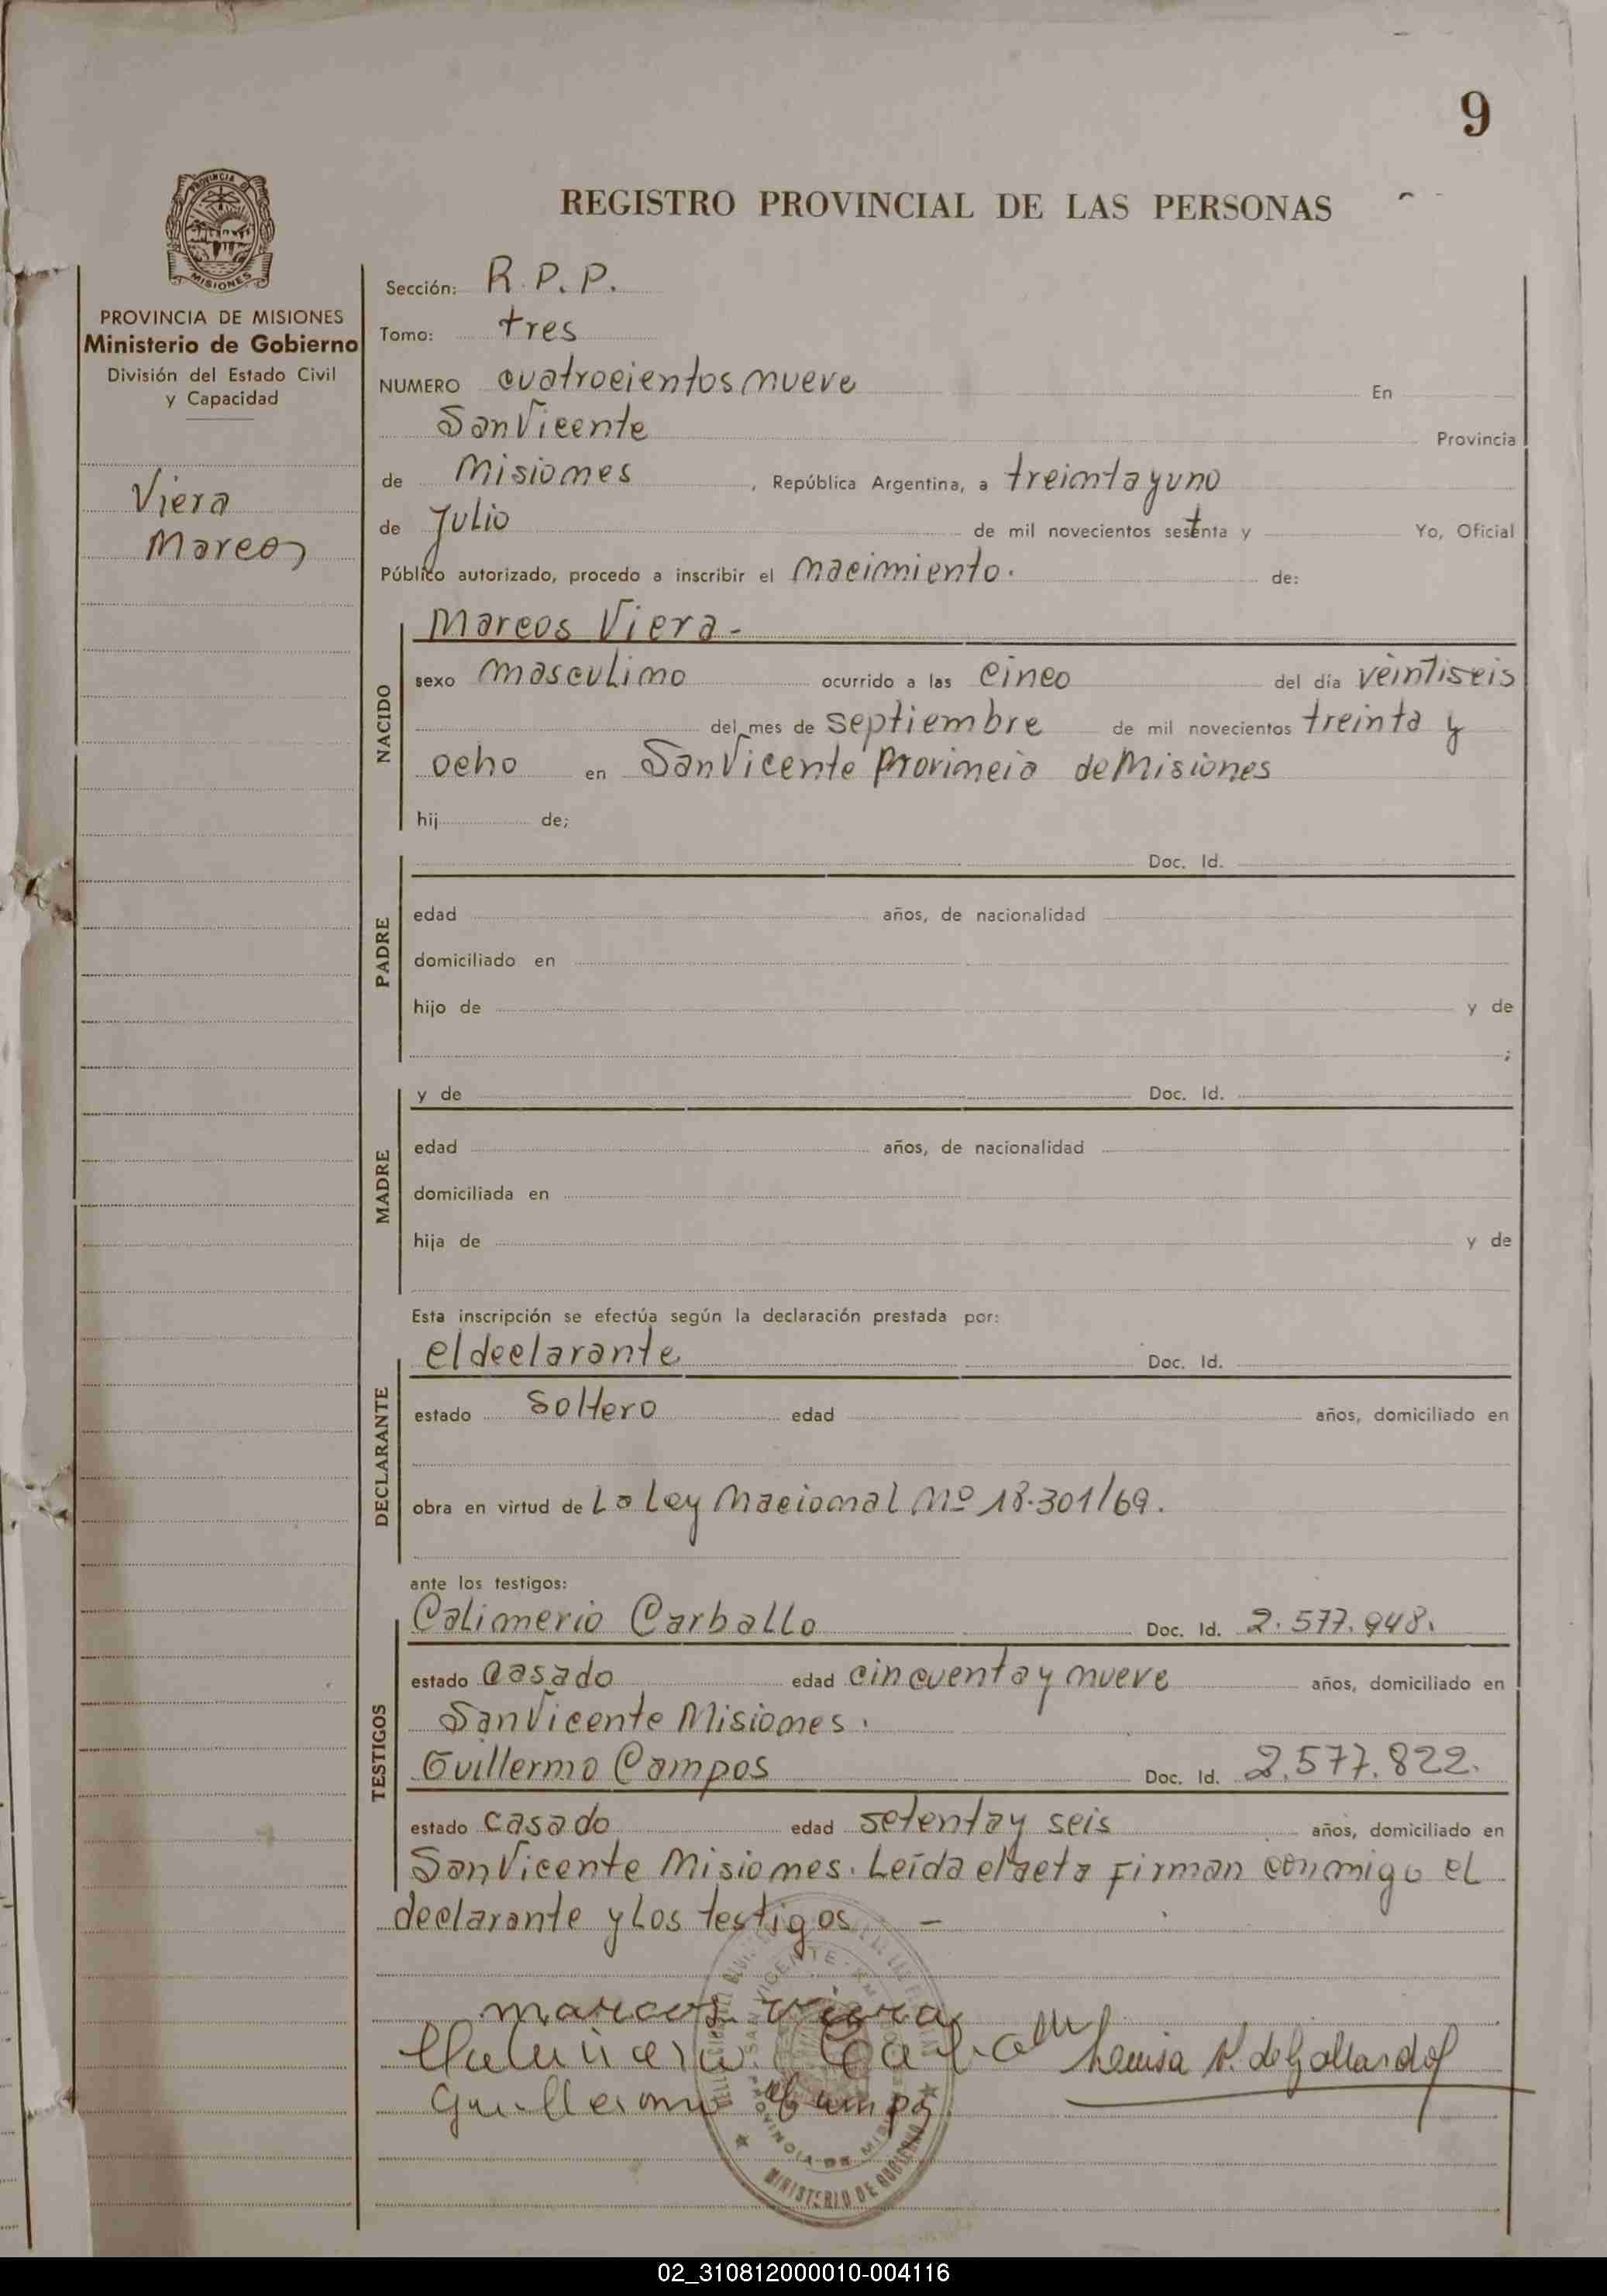 9
REGISTRO PROVINCIAL DE LAS PERSONAS
PROVINCIA DE MISIONES
PROVINCIA DE MISIONES
Ministerio de Gobierno
División del Estado Civil
y Capacidad
Viera
Marcos
Sección: R.P.P.
Tomo: tres
NUMERO cuatrocientos nueve En
San Vicente Provincia
de Misiones, República Argentina, a treinta y uno
de Julio de mil novecientos setenta y Yo, Oficial
Público autorizado, procedo a inscribir el nacimiento. de:
NACIDO
Marcos Viera -
sexo masculino ocurrido a las cinco del día veintiseis
del mes de septiembre de mil novecientos treinta y
ocho en San Vicente Provincia de Misiones
hij de;
PADRE
Doc. Id.
edad años, de nacionalidad
domiciliado en
hijo de y de
;
MADRE
y de Doc. Id.
edad años, de nacionalidad
domiciliada en
hija de y de
Esta inscripción se efectúa según la declaración prestada por:
DECLARANTE
el declarante Doc. Id.
estado Soltero edad años, domiciliado en
obra en virtud de La Ley Nacional Nº 18.301/69.
ante los testigos:
TESTIGOS
Calimerio Carballo Doc. Id. 2.577.948.
estado casado edad cincuenta y nueve años, domiciliado en
San Vicente Misiones.
Guillermo Campos Doc. Id. 2.577.822.
estado casado edad setenta y seis años, domiciliado en
San Vicente Misiones. Leída el acta firman conmigo el
declarante y los testigos -
marcos viera
Guillermo Campos
SAN VICENTE
PROVINCIA DE MISIONES
MINISTERIO DE GOBIERNO
02_310812000010-004116